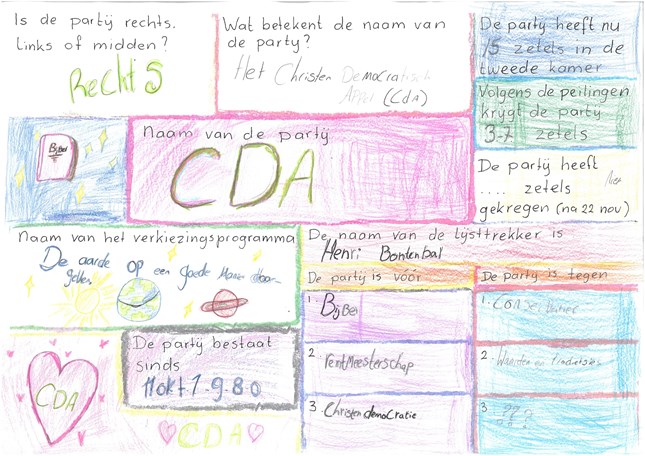 Is de partij rechts.
Links of midden?
Rechts
Wat betekent de naam van
de party?
Het Christen Democratisch
Appel (CdA)
De party heeft nu
15 zetels in de
tweede kamer
Volgens de peilingen
krijgt de party
3-7 zetels
De partij heeft
.... zetels
gekregen (na 22 nov)
Bijbel
Naam van de partij
CDA
Naam van het verkiezingsprogramma
De aarde
op
een goede
De naam van de lijsttrekker is
Henri Bontenbal
De partij is vóór
1. Bijbel
2. rentMeesterschap
3. ChristendemoCratie
De party is tegen
1.
2. Waarden en
3 ???
CDA
De partij bestaat
sinds
11okt 1980
CDA